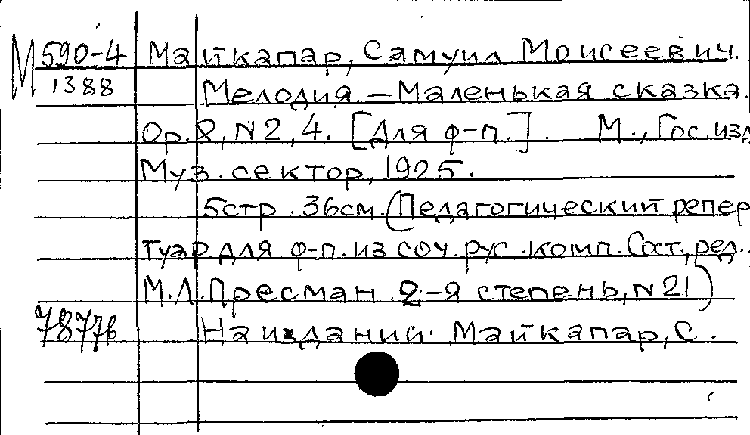 М 590-4 Майкапар, Самуил Моисеевич.
1388 Мелодия – Маленькая сказка.
Op. 8, N 2, 4. [Для ф-п.]. М., Гос. изд
Муз. сектор, 1925.
5стр. 36см. (Педагогический репер
туар для ф-п. из соч. рус. комп. Сост., ред.
М.Л. Пресман 2-я степень, N 21)
На издании: Майкапар, С.